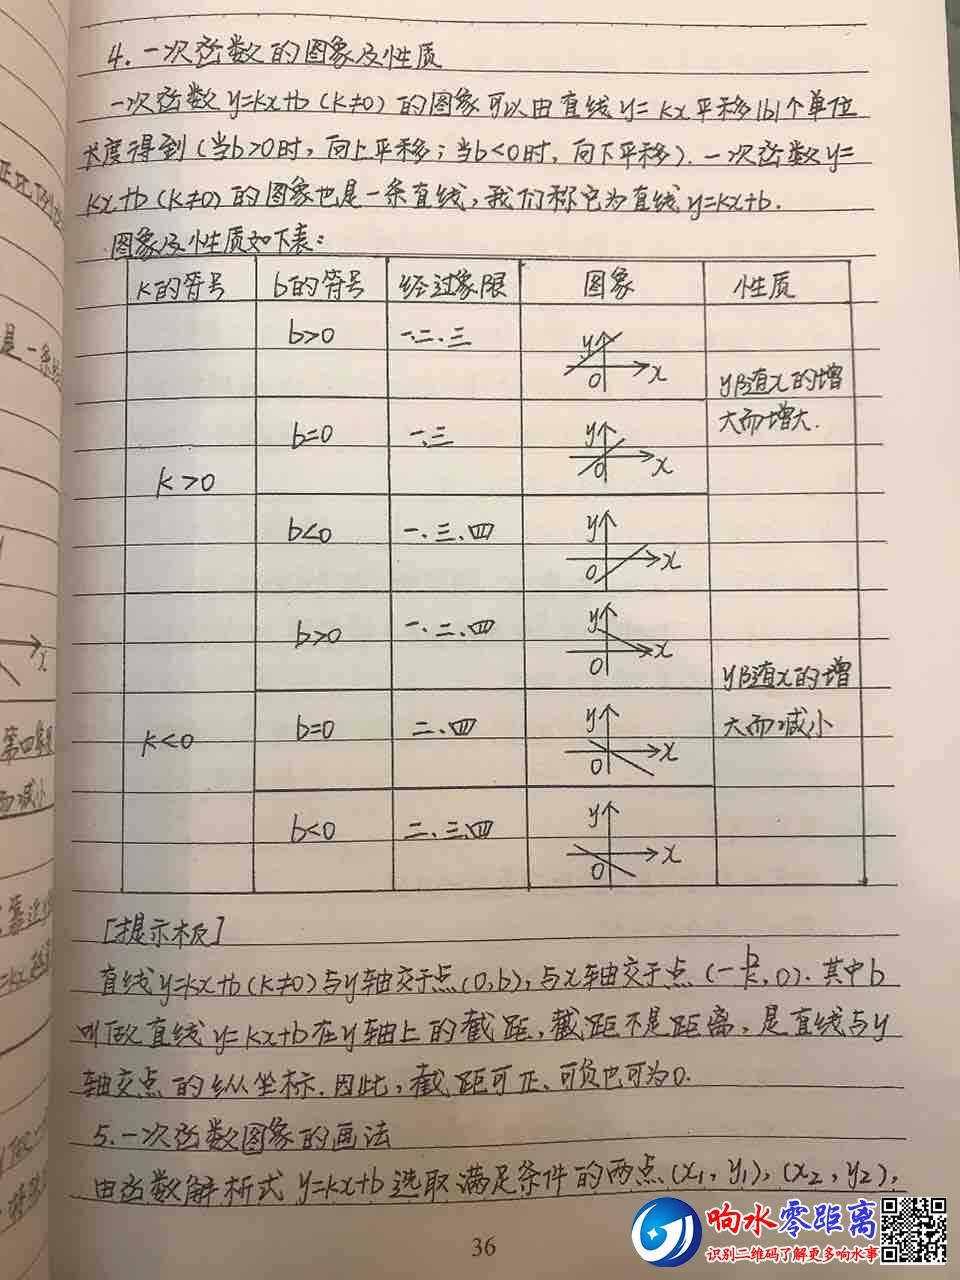 4. 一次函数的图象及性质
一次函数y=kx+b (k≠0) 的图象可以由直线y=kx平移|b|个单位
长度得到(当b>0时,向上平移;当b<0时,向下平移). 一次函数y=
kx+b (k≠0)的图象也是一条直线,我们称它为直线y=kx+b.
图象及性质如下表:
k的符号 b的符号 经过象限 图象 性质
b>0 一.二.三 y 0 x
y随x的增
大而增大.
b=0 一.三 y 0 x
k>0
b<0 一、三、四 y 0 x
b>0 一、二、四 y 0 x
y随x的增
大而减小
k<0
b=0 二、四 y 0 x
b<0 二、三、四 y 0 x
[提示板]
直线y=kx+b(k≠0)与y轴交于点(0,b),与x轴交于点(-b/k,0).其中b
叫做直线y=kx+b在y轴上的截距,截距不是距离,是直线与y
轴交点的纵坐标.因此,截距可正、可负也可为0.
5.一次函数图象的画法
由函数解析式y=kx+b选取满足条件的两点(x₁,y₁),(x₂,y₂),
36
响水零距离
识别二维码了解更多响水事
第四象限
而减小